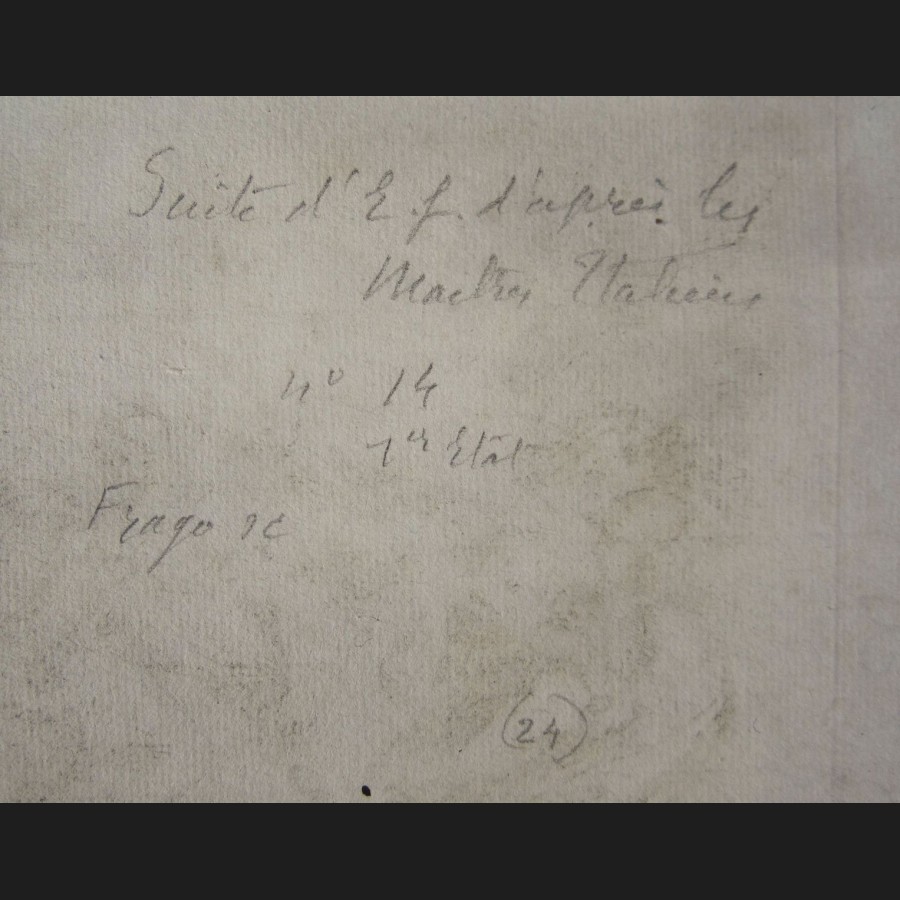 Suite d'E.f. d'après les
Maitres Italiens
nº 14
1er Etat
Frago sc
(24)